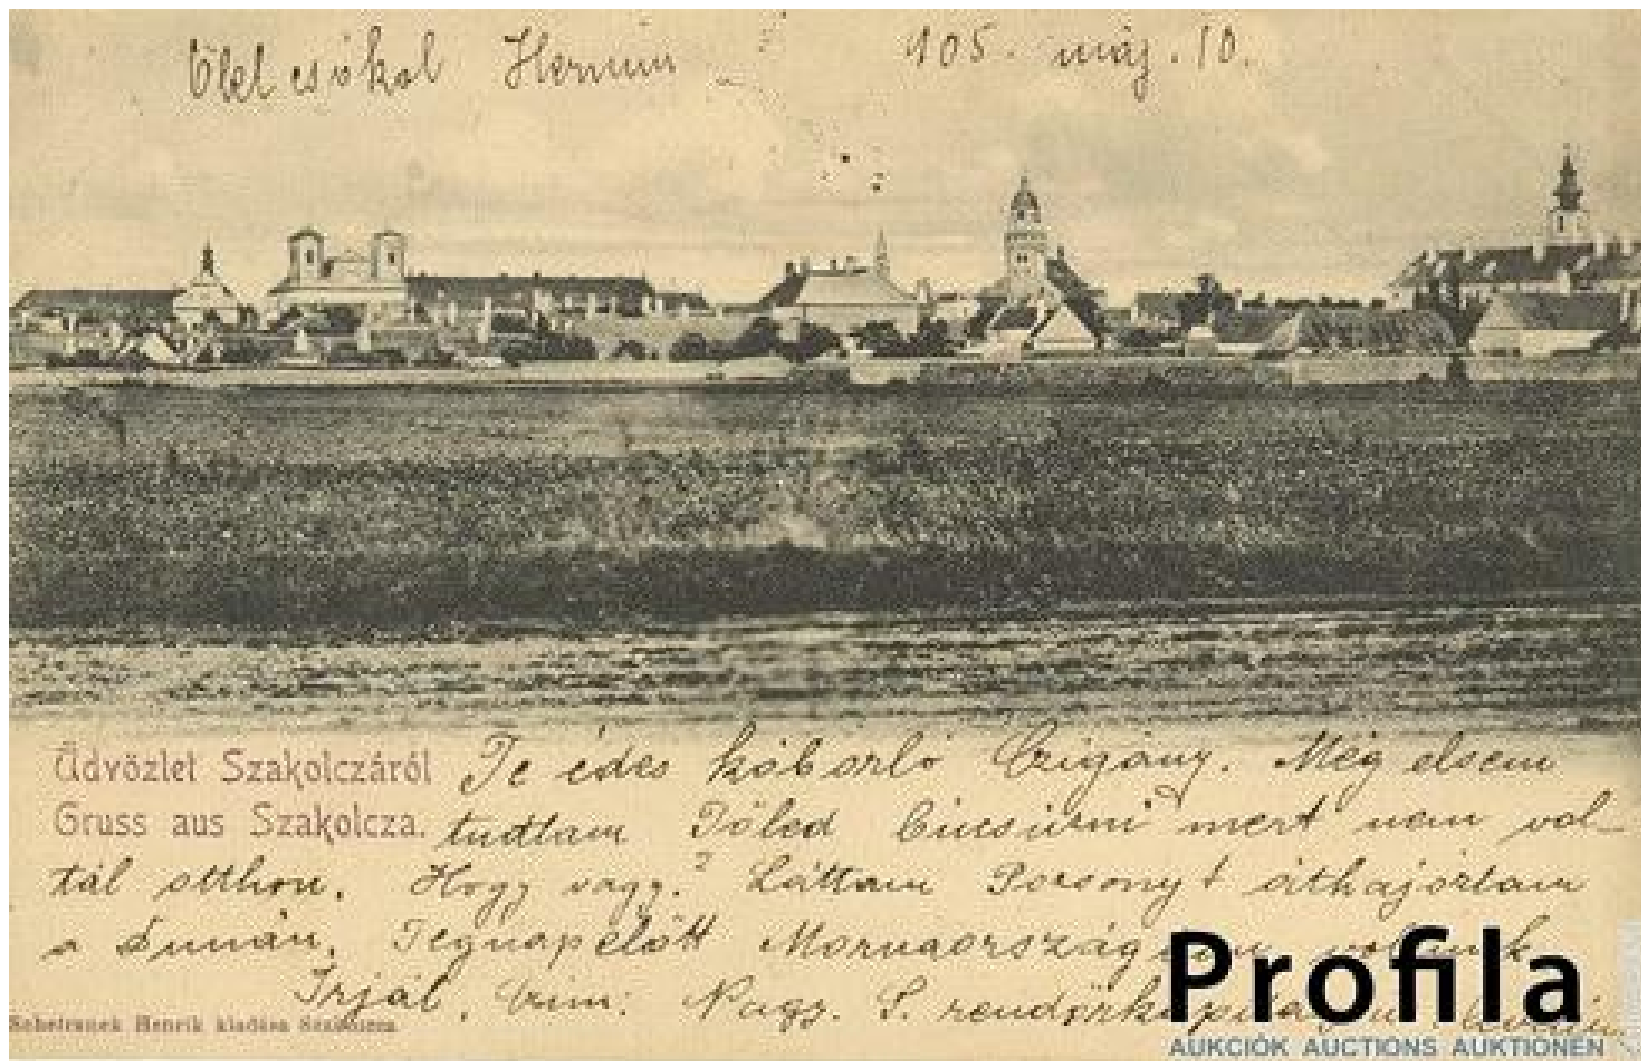 Ölel csókol Hermin
105. máj. 10.
Üdvözlet Szakolczáról
Gruss aus Szakolcza.
Te édes kóborló Czigány. Még elsem
tudtam Tőled búcsúzni mert nem vol-
tál otthon. Hogy vagy? Láttam Pozsonyt áthajóztam
a Dunán. Tegnapelőtt Morvaország voltunk
Irjál, Czim: Nagy. S. rendőrkapitány
Henrik kiadása Szakolcza
Profila
AUKCIÓK AUCTIONS AUKTIONEN